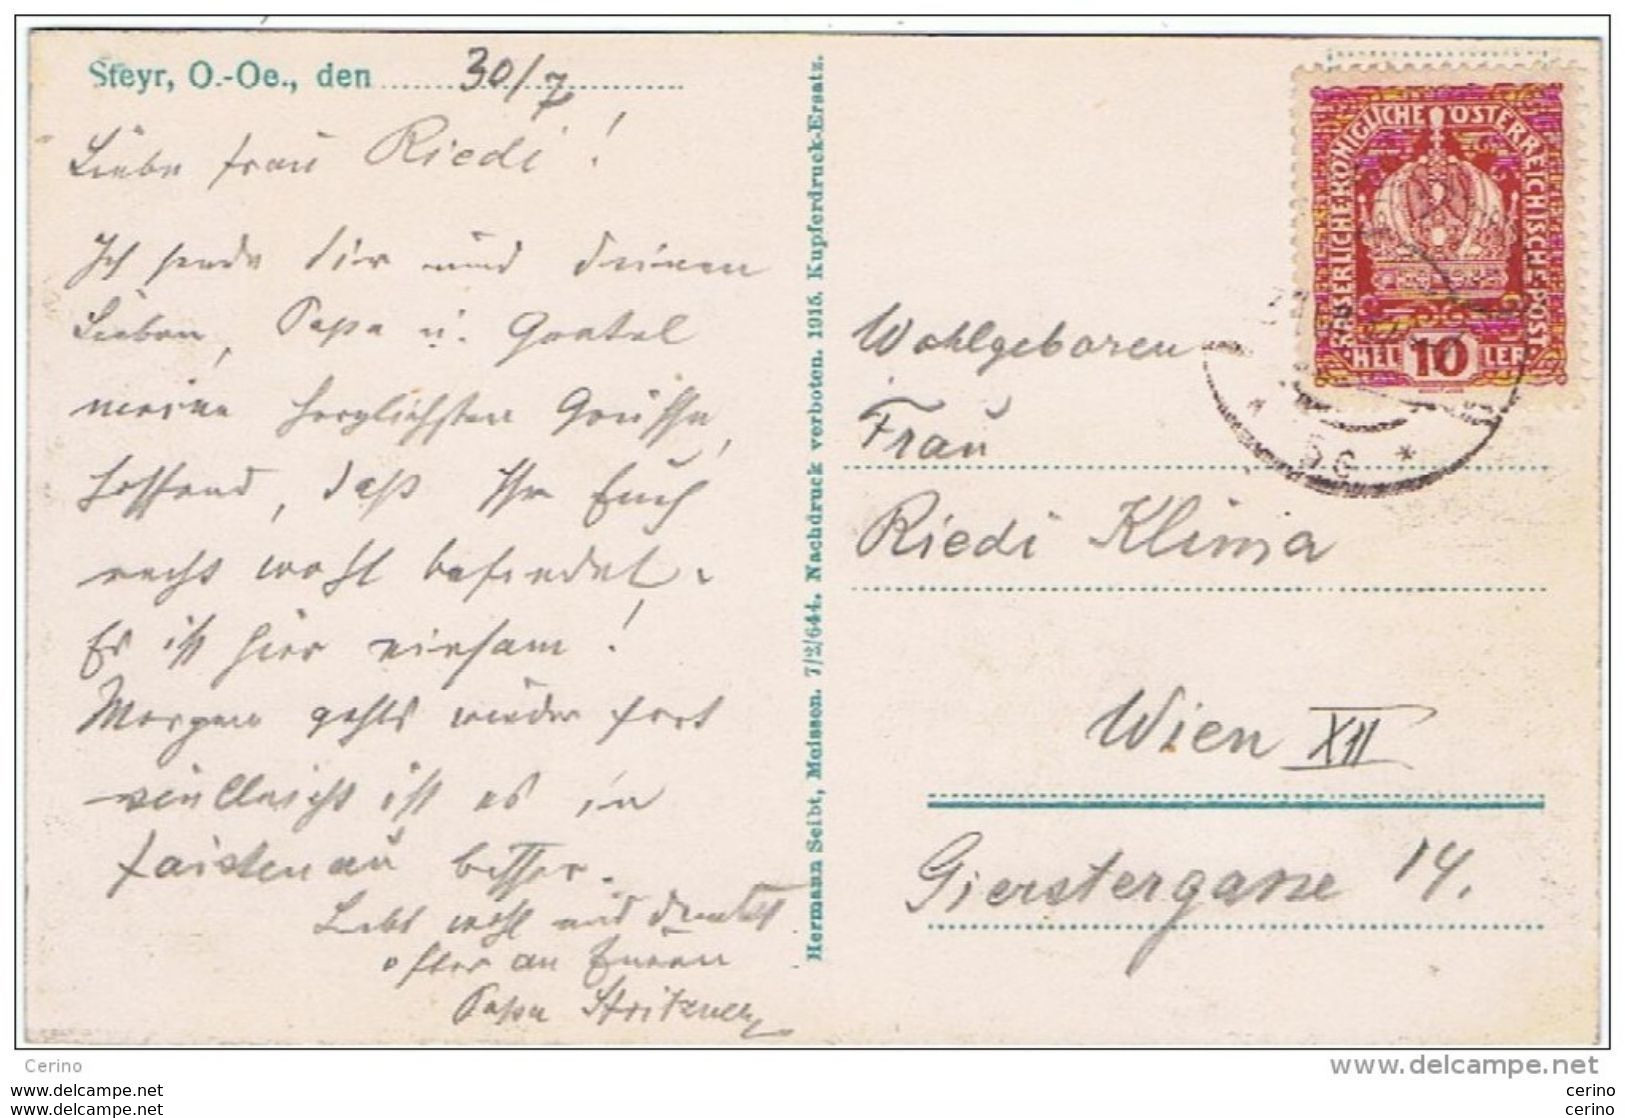 Steyr, O.-Oe., den 30/7
Liebe Frau Riedi!
Ich sende Dir und Deinen
Lieben, Papa u. Gretel
meine herzlichsten Grüsse,
hoffend, daß Ihr Euch
recht wohl befindet.
Es ist hier einsam!
Morgen gehts wieder fort
vielleicht ist es in
Faistenau besser.
Lebt wohl und denket
öfter an Euren
Papa
Hermann Seibt, Meissen. 7/2/644. Nachdruck verboten. 1915. Kupferdruck-Ersatz.
KAISERLICHE KÖNIGLICHE ÖSTERREICHISCHE POST
HEL 10 LER
56 *
Wohlgeboren
Frau
Riedi Klima
Wien XII
Gierstergasse 14.
Cerino
www.delcampe.net
www.delcampe.net
www.delcampe.net
cerino
cerino